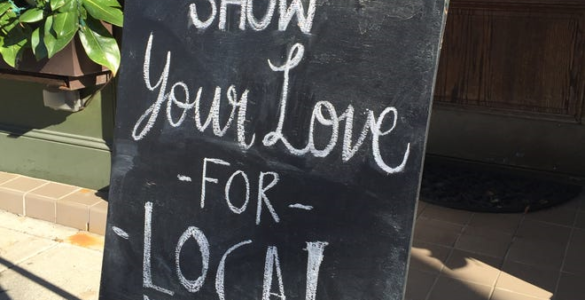 SHOW
Your Love
-FOR-
-LOCAL